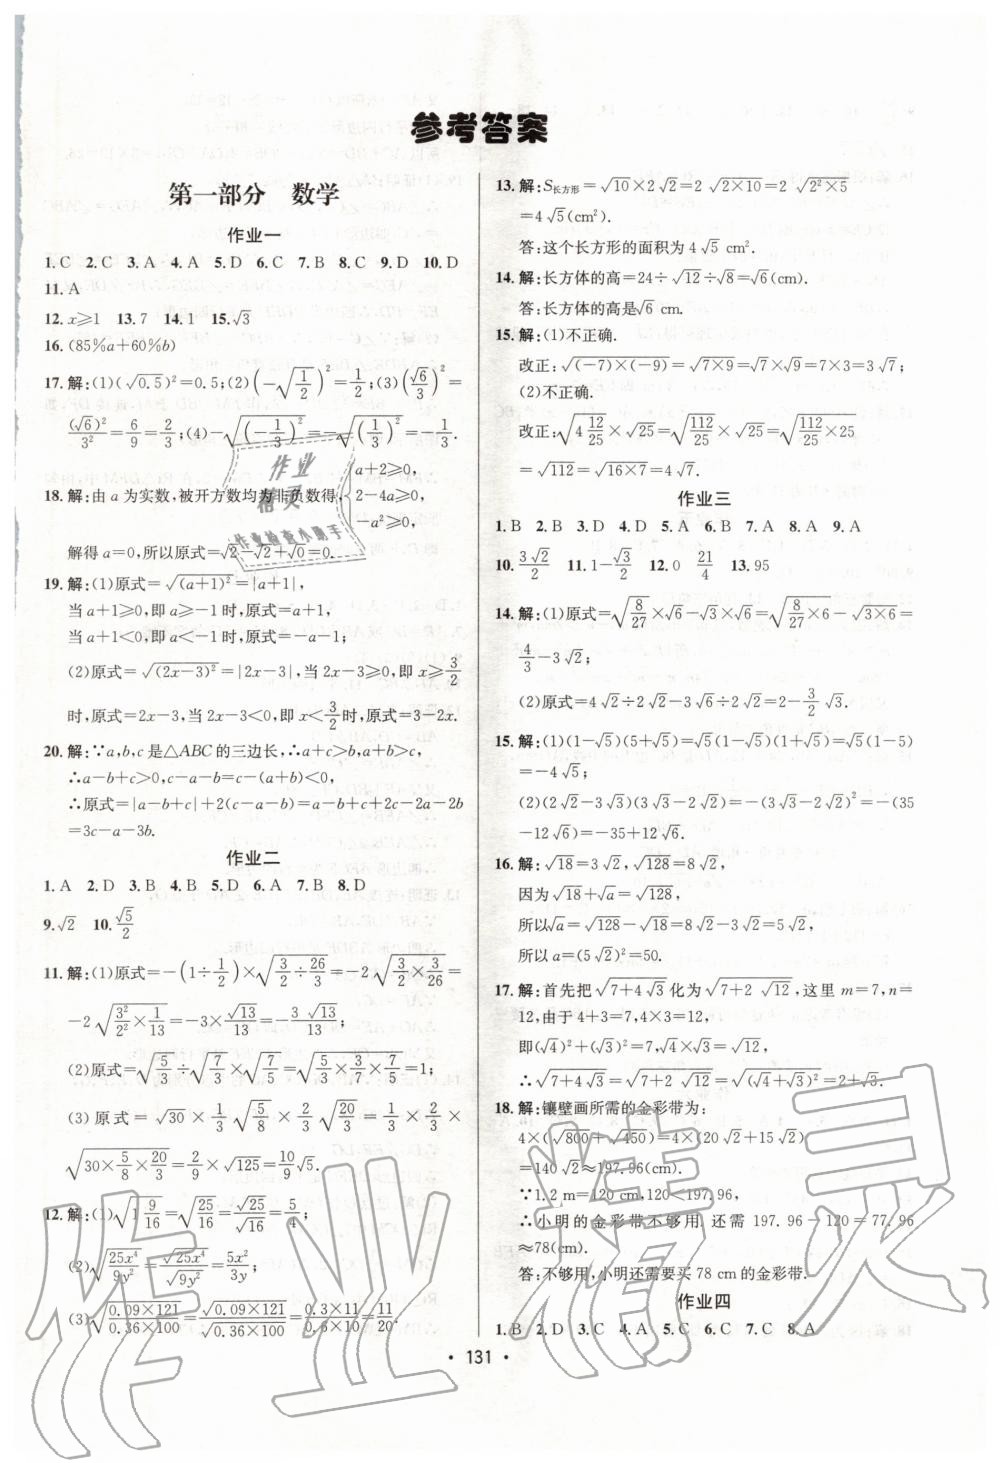 参考答案
第一部分 数学
作业一
1.C 2.C 3.A 4.A 5.D 6.C 7.B 8.C 9.D 10.D
11.A
12.x≥1 13.7 14.1 15.√3
16.(85%a+60%b)
17.解:(1)(√0.5)²=0.5;(2)(-√(1/2))²=1/2;(3)(√6/3)²=
(√6)²/3²=6/9=2/3;(4)-√((-1/3)²)=-√((1/3)²)=-1/3.
18.解:由a为实数,被开方数均为非负数得,{a+2≥0, 2-4a≥0, -a²≥0,
解得a=0,所以原式=√2-√2+√0=0.
19.解:(1)原式=√((a+1)²)=|a+1|,
当a+1≥0,即a≥-1时,原式=a+1,
当a+1<0,即a<-1时,原式=-a-1;
(2)原式=√((2x-3)²)=|2x-3|,当2x-3≥0,即x≥3/2
时,原式=2x-3,当2x-3<0,即x<3/2时,原式=3-2x.
20.解:∵a,b,c是△ABC的三边长,∴a+c>b,a+b>c,
∴a-b+c>0,c-a-b=c-(a+b)<0,
∴原式=|a-b+c|+2(c-a-b)=a-b+c+2c-2a-2b
=3c-a-3b.
作业二
1.A 2.D 3.B 4.B 5.D 6.A 7.B 8.D
9.√2 10.√5/2
11.解:(1)原式=-(1÷1/2)×√(3/2÷26/3)=-2√(3/2×3/26)=
-2√(3²/2²×1/13)=-3×√13/13=-3√13/13;
(2)原式=√(5/3÷7/3×7/5)=√(5/3×3/7×7/5)=1;
(3)原式=√30×1/3√(5/8)×2/3√(20/3)=1/3×2/3×
√(30×5/8×20/3)=2/9×√125=10/9√5.
12.解:(1)√(1 9/16)=√(25/16)=√25/√16=5/4;
(2)√(25x⁴/9y²)=√25x⁴/√9y²=5x²/3y;
(3)√(0.09×121/0.36×100)=√0.09×121/√0.36×100=0.3×11/0.6×10=11/20.
13.解:S长方形=√10×2√2=2√(2×10)=2√(2²×5)
=4√5(cm²).
答:这个长方形的面积为4√5 cm².
14.解:长方体的高=24÷√12÷√8=√6(cm).
答:长方体的高是√6 cm.
15.解:(1)不正确.
改正:√((-7)×(-9))=√(7×9)=√7×√9=√7×3=3√7;
(2)不正确.
改正:√(4 12/25)×√25=√(112/25)×√25=√(112/25×25)
=√112=√(16×7)=4√7.
作业三
1.B 2.B 3.D 4.D 5.A 6.B 7.A 8.A 9.A
10.3√2/2 11.1-√3/2 12.0 21/4 13.95
14.解:(1)原式=√(8/27)×√6-√3×√6=√(8/27×6)-√(3×6)=
4/3-3√2;
(2)原式=4√2÷2√2-3√6÷2√2=2-3/2√3.
15.解:(1)(1-√5)(5+√5)=√5(1-√5)(1+√5)=√5(1-5)
=-4√5;
(2)(2√2-3√3)(3√3-2√2)=-(3√3-2√2)²=-(35
-12√6)=-35+12√6.
16.解:√18=3√2,√128=8√2,
因为√18+√a=√128,
所以√a=√128-√18=8√2-3√2=5√2,
所以a=(5√2)²=50.
17.解:首先把√(7+4√3)化为√(7+2√12),这里m=7,n=
12,由于4+3=7,4×3=12,
即(√4)²+(√3)²=7,√4×√3=√12,
∴√(7+4√3)=√(7+2√12)=√((√4+√3)²)=2+√3.
18.解:镶壁画所需的金彩带为:
4×(√800+√450)=4×(20√2+15√2)
=140√2≈197.96(cm).
∵1.2 m=120 cm,120<197.96,
∴小明的金彩带不够用.还需197.96-120=77.96
≈78(cm).
答:不够用,小明还需要买78 cm的金彩带.
作业四
1.B 2.D 3.C 4.C 5.C 6.C 7.C 8.A
·131·
作业精灵
作业检查小助手
作业精灵